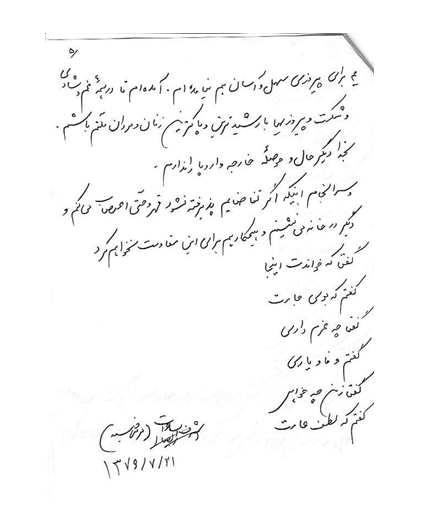 ۵
برای پیروزی سهل و آسان هم نیامده‌ام. آمده‌ام تا در همهٔ غم و شادی
و شکست و پیروزیها با رشیدترین و پاکترین زنان و مردان ملتم باشم.
دیگر حال و حوصلهٔ خارجه و اروپا را ندارم.
و سرانجام اینکه اگر تقاضایم پذیرفته نشود قهر و حتی اعتصاب می‌کنم و
دیگر در خانه می‌نشینم و هیچکاری هم برای این مقاومت نخواهم کرد
گفتا که خواندت اینجا
گفتم که بوی جامت
گفتا چه عزم داری
گفتم وفا و یاری
گفتا ز من چه خواهی
گفتم که لطف عامت
۱۳۷۹/۷/۲۱